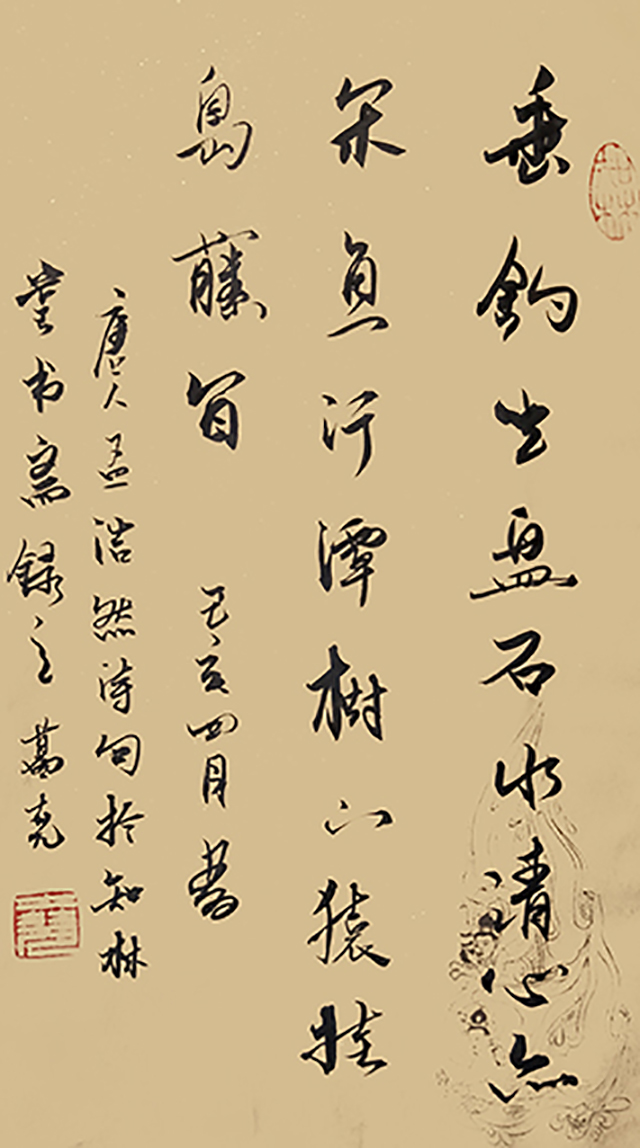 垂釣坐盘石水清心亦
閑魚行潭樹下猿挂
島藤間 己亥四月書
唐人孟浩然诗句於知林
堂书斋録之 葛